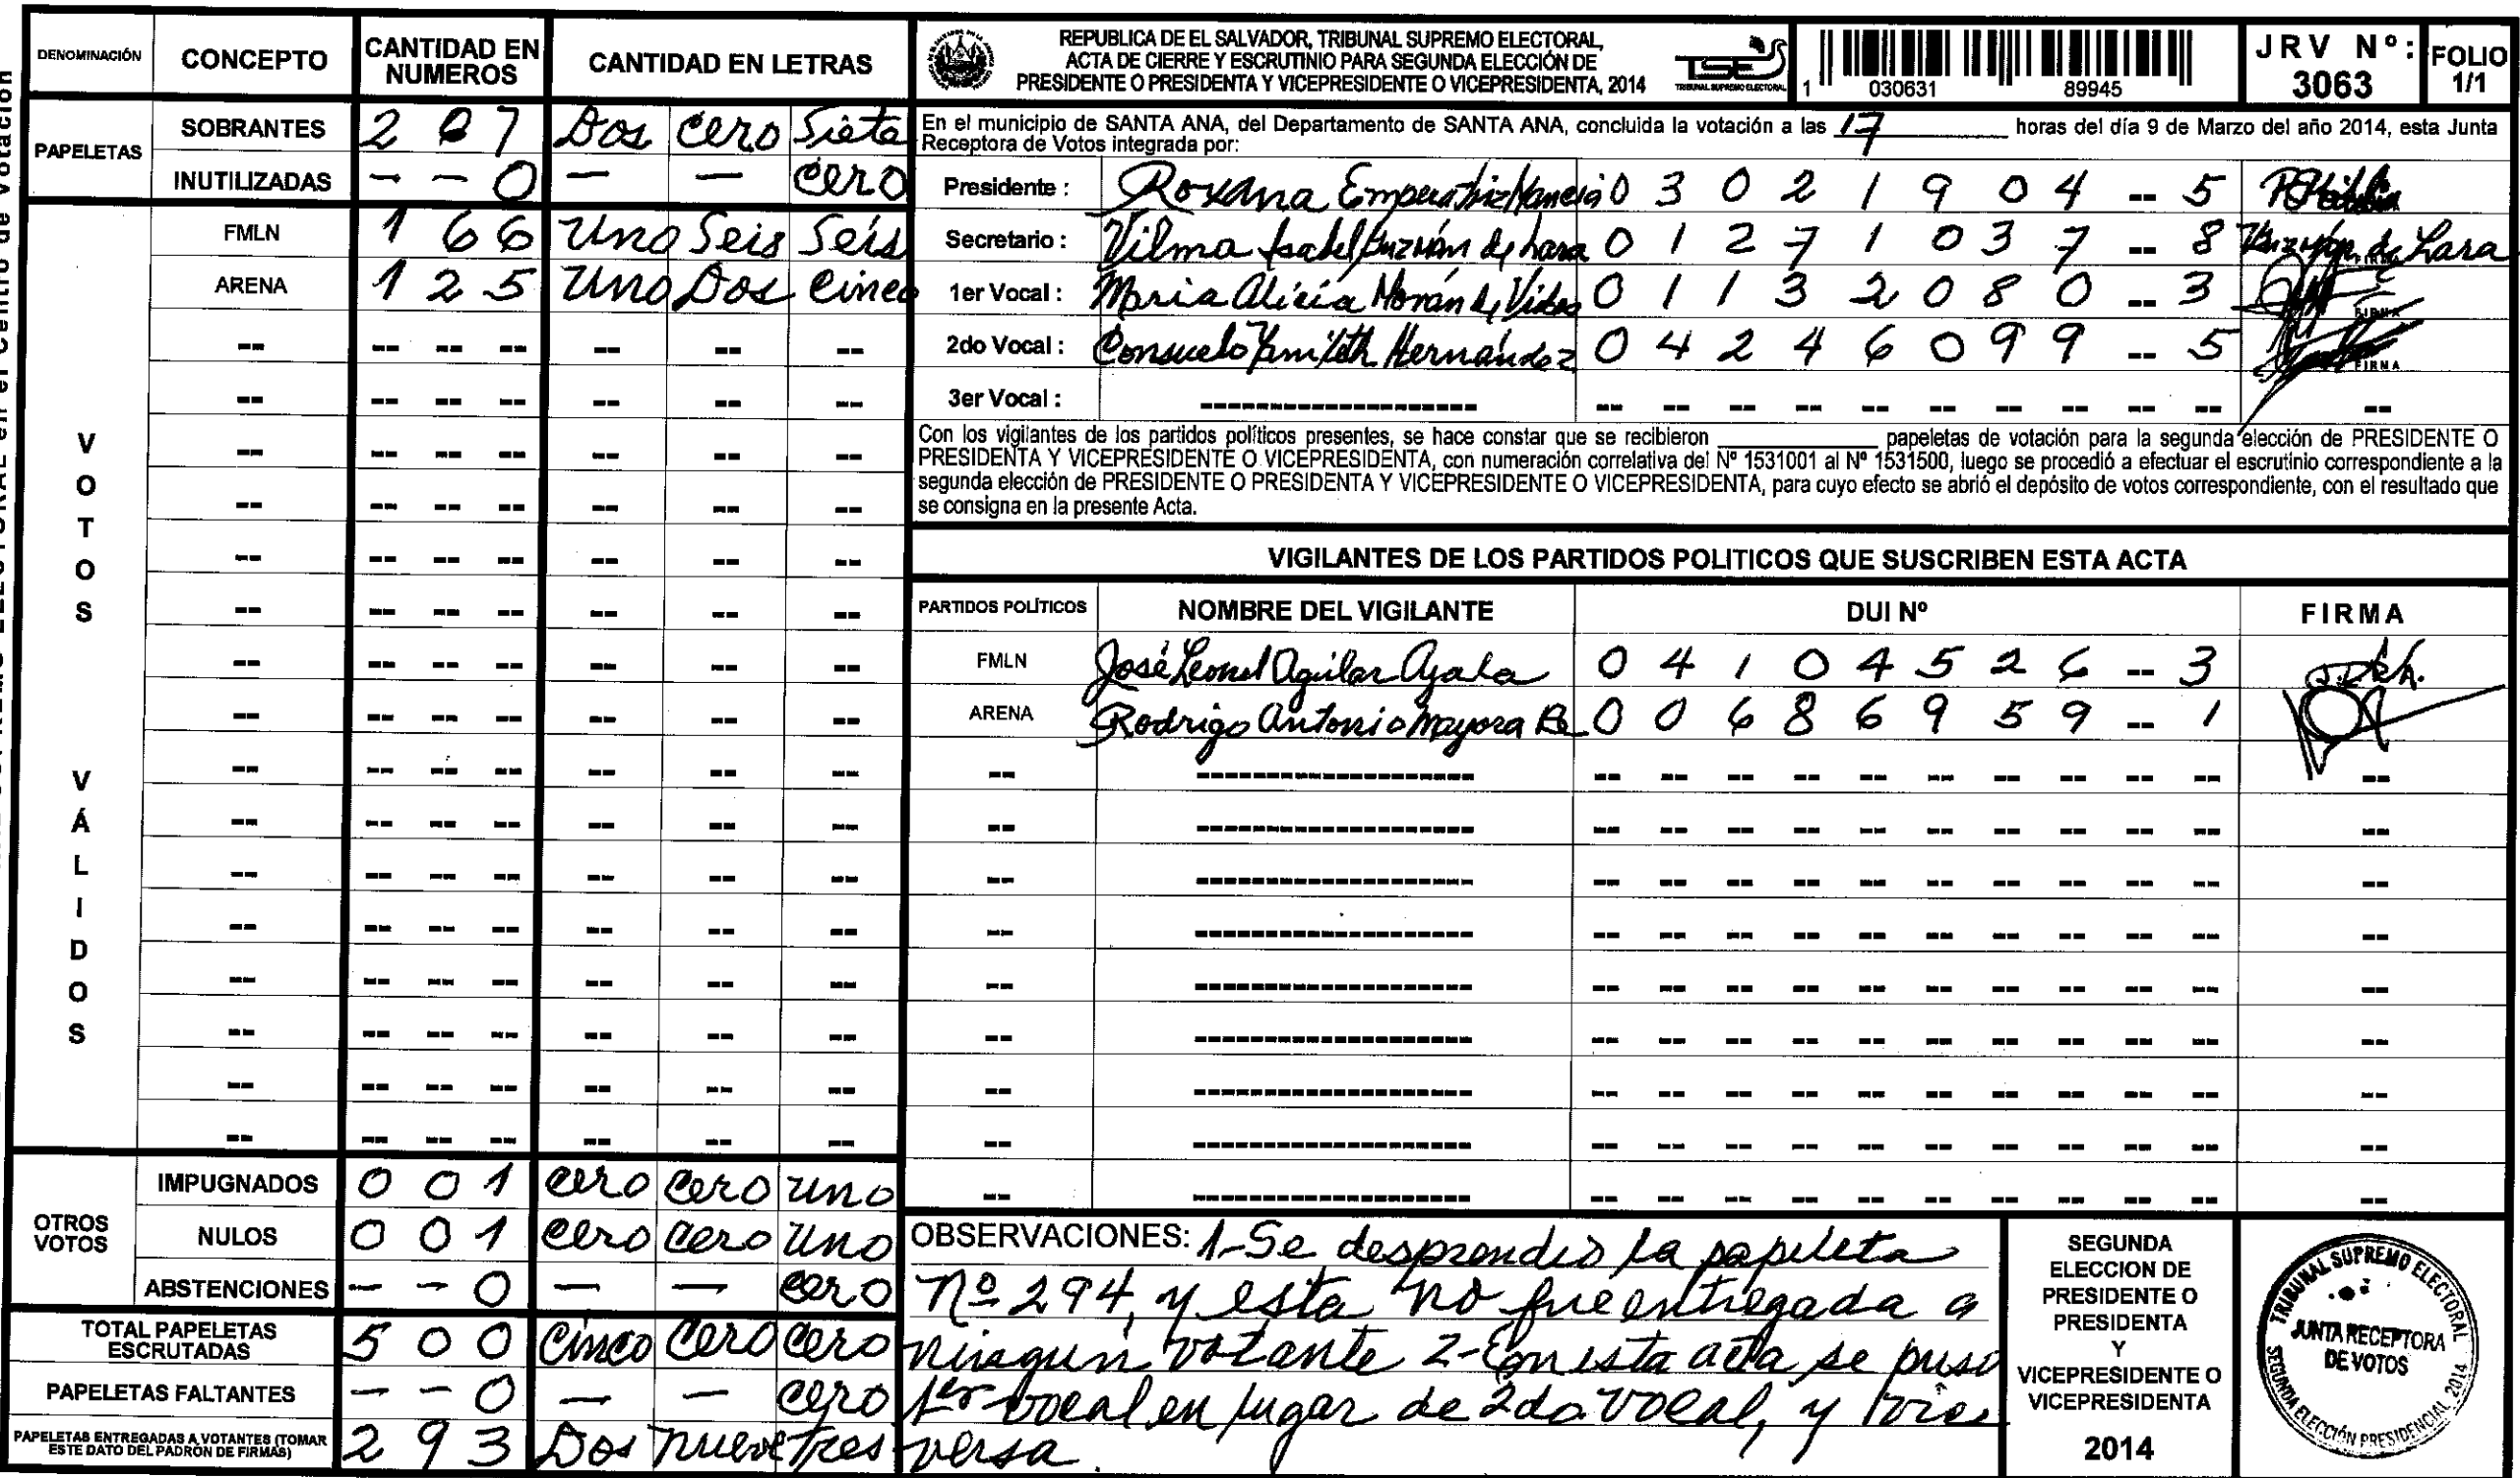 DENOMINACIÓN CONCEPTO CANTIDAD EN NUMEROS CANTIDAD EN LETRAS
PAPELETAS
SOBRANTES 2 0 7 Dos cero Siete
INUTILIZADAS - - 0 — — cero
VOTOS VÁLIDOS
FMLN 1 6 6 Uno Seis Seis
ARENA 1 2 5 Uno Dos Cinco
OTROS VOTOS
IMPUGNADOS 0 0 1 cero cero uno
NULOS 0 0 1 cero cero uno
ABSTENCIONES - - 0 — — cero
TOTAL PAPELETAS ESCRUTADAS 5 0 0 Cinco cero cero
PAPELETAS FALTANTES - - 0 — — cero
PAPELETAS ENTREGADAS A VOTANTES (TOMAR ESTE DATO DEL PADRÓN DE FIRMAS) 2 9 3 Dos nueve tres
REPUBLICA DE EL SALVADOR, TRIBUNAL SUPREMO ELECTORAL,
ACTA DE CIERRE Y ESCRUTINIO PARA SEGUNDA ELECCIÓN DE
PRESIDENTE O PRESIDENTA Y VICEPRESIDENTE O VICEPRESIDENTA, 2014
TSE
TRIBUNAL SUPREMO ELECTORAL
1 030631 89945
JRV Nº: 3063
FOLIO 1/1
En el municipio de SANTA ANA, del Departamento de SANTA ANA, concluida la votación a las 17 horas del día 9 de Marzo del año 2014, esta Junta
Receptora de Votos integrada por:
Presidente : Roxana Emperatriz 0 3 0 2 1 9 0 4 -- 5
Secretario : Vilma Isabel Guzmán de Lara 0 1 2 7 1 0 3 7 -- 8 Guzmán de Lara
1er Vocal : Maria Alicia Morán de 0 1 1 3 2 0 8 0 -- 3 FIRMA
2do Vocal : Consuelo Hernández 0 4 2 4 6 0 9 9 -- 5 FIRMA
3er Vocal :
Con los vigilantes de los partidos políticos presentes, se hace constar que se recibieron ________ papeletas de votación para la segunda elección de PRESIDENTE O
PRESIDENTA Y VICEPRESIDENTE O VICEPRESIDENTA, con numeración correlativa del Nº 1531001 al Nº 1531500, luego se procedió a efectuar el escrutinio correspondiente a la
segunda elección de PRESIDENTE O PRESIDENTA Y VICEPRESIDENTE O VICEPRESIDENTA, para cuyo efecto se abrió el depósito de votos correspondiente, con el resultado que
se consigna en la presente Acta.
VIGILANTES DE LOS PARTIDOS POLITICOS QUE SUSCRIBEN ESTA ACTA
PARTIDOS POLÍTICOS NOMBRE DEL VIGILANTE DUI Nº FIRMA
FMLN José Leonel Aguilar Ayala 0 4 1 0 4 5 2 6 -- 3
ARENA Rodrigo Antonio Mayora 0 0 6 8 6 9 5 9 -- 1
OBSERVACIONES: 1-Se desprendio la papeleta
Nº 294, y esta no fue entregada a
ningun votante 2-En esta acta se puso
1er vocal en lugar de 2do vocal, y vice
versa.
SEGUNDA
ELECCION DE
PRESIDENTE O
PRESIDENTA
Y
VICEPRESIDENTE O
VICEPRESIDENTA
2014
TRIBUNAL SUPREMO ELECTORAL
JUNTA RECEPTORA
DE VOTOS
SEGUNDA ELECCIÓN PRESIDENCIAL 2014